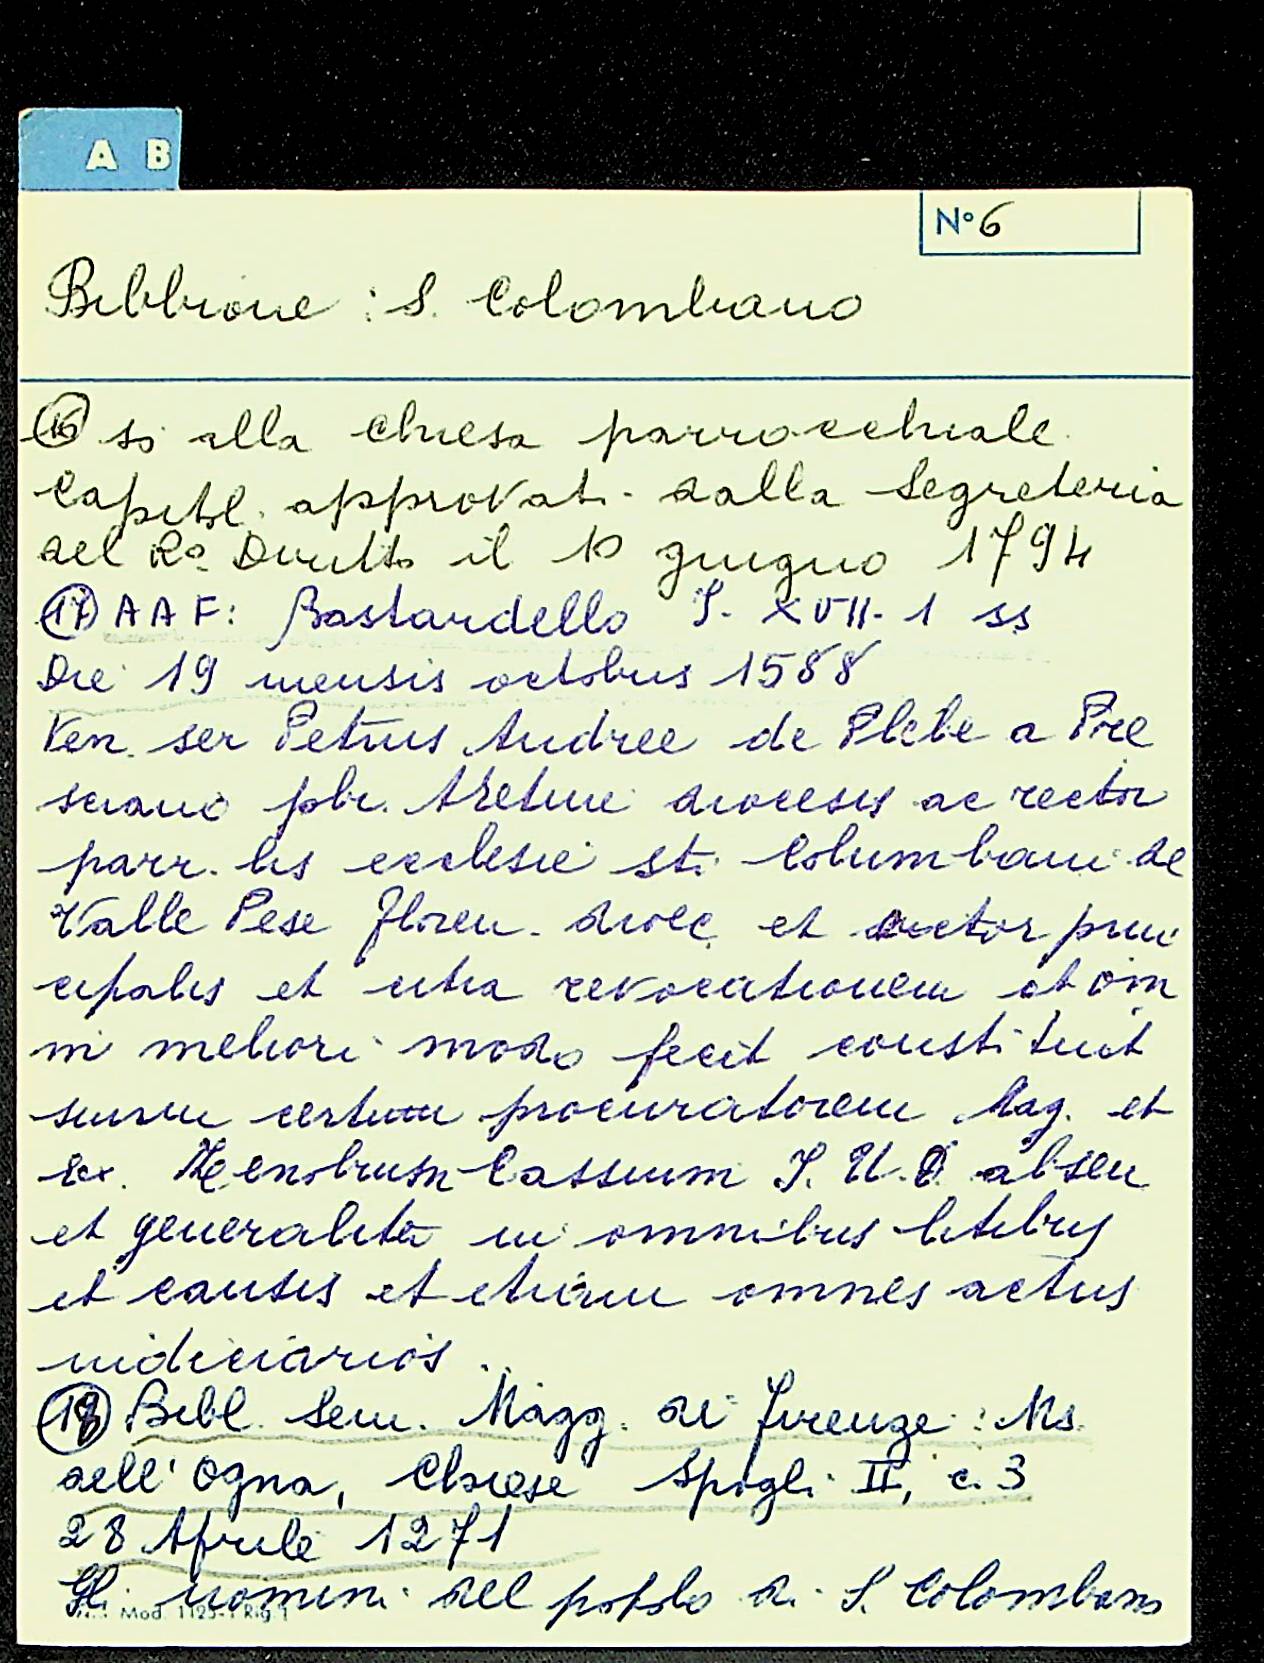 A B
N° 6
Bibbione : S. Colombano
(16) si alla chiesa parrocchiale.
Capitol. approvati dalla Segreteria
del R° Diritto il 10 giugno 1794
(17) AAF: Bastardello I. XVII. 1 ss
Die 19 mensis octobris 1588
Ven. ser Petrus Andree de Plebe a Pre
sciano pbr. Aretine diocesis ac rector
parr. lis ecclesie sti Columbani de
Valle Pese floren. dioec et rector prin
cipalis et citra revocationem et om
ni meliori modo fecit constituit
suum certum procuratorem Mag. et
Ex. Cassium I. U. D. absen
et generalite in omnibus litibus
et causis et etiam omnes actus
iudiciarios ..
(18) Bibl. Sem. Magg. di Firenze : Ms.
dell' Ogna, Chiese Spogli II, c. 3
28 Aprile 1271
Gli uomini del popolo di S. Colombano
Mod. 1125-1 Rig. 1